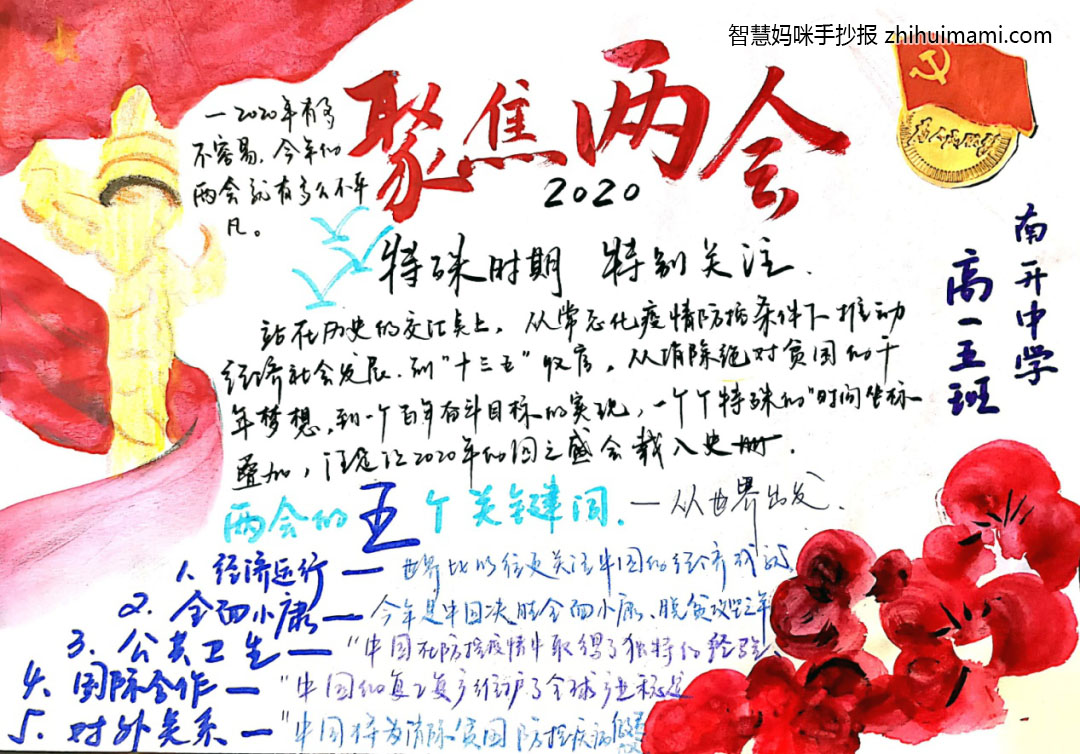 智慧妈咪手抄报 zhihuimami.com
聚焦两会
2020
一2020年有多
不容易,今年的
两会就有多么不平
凡。
特殊时期 特别关注.
南开中学
高一五班
站在历史的交汇点上,从常态化疫情防控条件下推动
经济社会发展.到“十三五”收官,从消除绝对贫困的千
年梦想,到一个百年奋斗目标的实现,一个个特殊的“时间坐标
叠加,注定让2020年的国之盛会载入史册.
两会的五个关键词.—从世界出发.
1. 经济运行—世界比以往更关注中国的经济
2. 全面小康—今年是中国决胜全面小康、脱贫攻坚之年
3. 公共卫生—“中国在防控疫情中取得了独特的经验、
4. 国际合作—“中国的复工复产维护了全球产业稳定
5. 对外关系—“中国将为消除贫困防控疾病